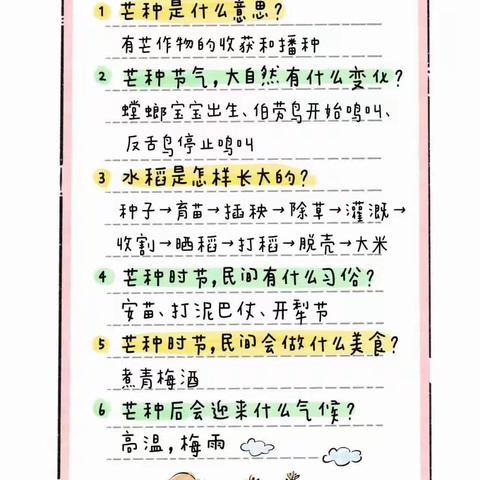 1 芒种是什么意思?
有芒作物的收获和播种
2 芒种节气,大自然有什么变化?
螳螂宝宝出生、伯劳鸟开始鸣叫、
反舌鸟停止鸣叫
3 水稻是怎样长大的?
种子→育苗→插秧→除草→灌溉→
收割→晒稻→打稻→脱壳→大米
4 芒种时节,民间有什么习俗?
安苗、打泥巴仗、开犁节
5 芒种时节,民间会做什么美食?
煮青梅酒
6 芒种后会迎来什么气候?
高温,梅雨